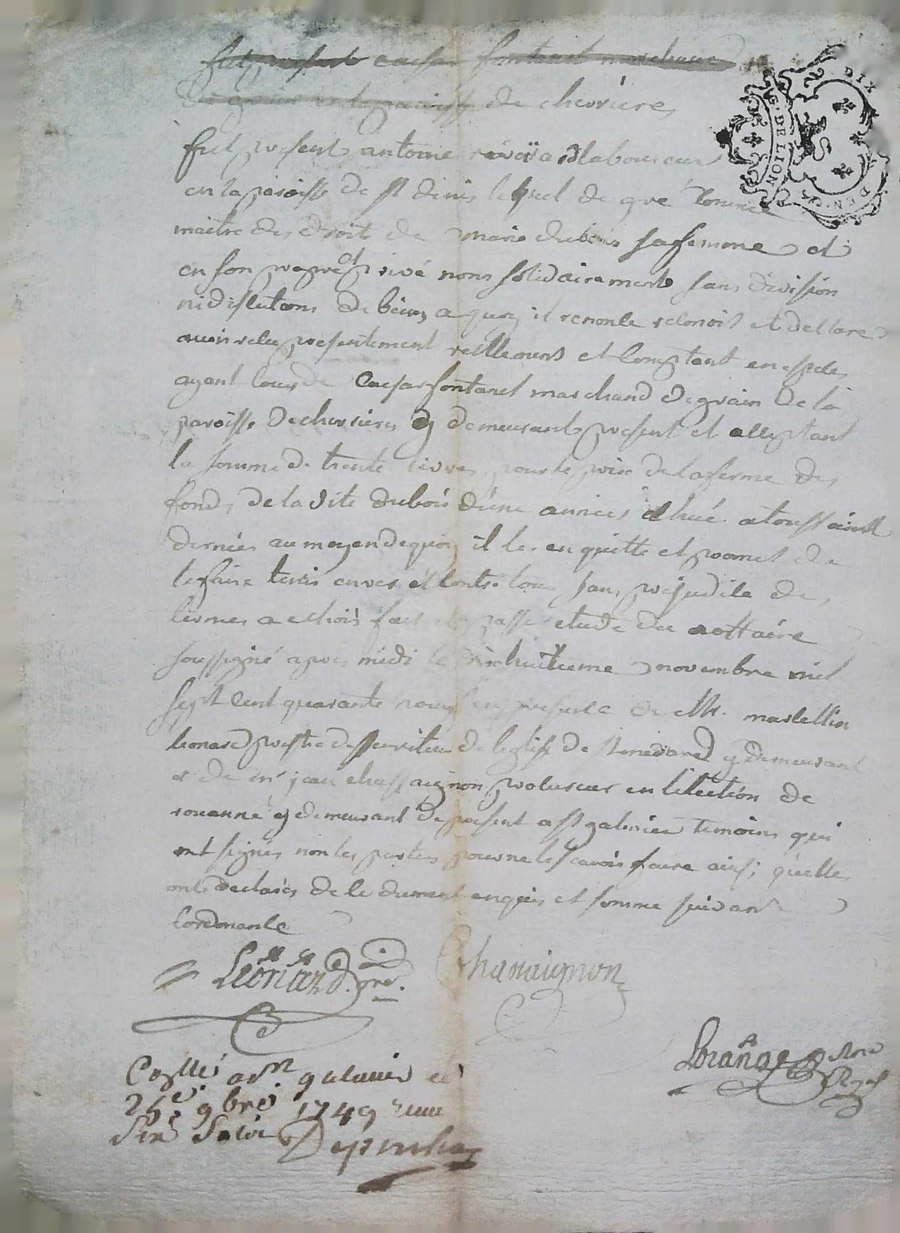 fut present caesar fontanet marchand
de grain en la paroisse de chevriere
fut present antoine laboureur
en la paroisse de st denis lequel de gré comme
maitre des droits de marie dubois sa femme et
en son propre et privé nom solidairement sans division
ni discutions de biens a quoy il renonce reconoit et declare
avoir reçu presentement reellement et comptant en especes
ayant cours de Caesar fontanet marchand de grain de la
paroisse de chevrieres y demeurant present et acceptant
la somme de trente livres pour le prix de la ferme des
fonds de la dite dubois d'une année échuë a toussaint
derniere au moyen de quoy il le en quitte et promet de
le faire tenir envers et contre tous sans prejudice de
termes a echoir fait et passé etude du nottaire
soussigné apres midi le dixhuitieme novembre mil
sept cent quarante neuf en presence de Mr. marcellin
leonard prestre desserviteur de l'eglise de st medard y demeurant
et de mr jean chassaignon procureur en l'election de
rouanne y demeurant de present a st galmier temoins qui
ont signés non les parties pour ne le scavoir faire ainsi qu'elles
ont declarés de ce dument enquis et sommé suivant
l'ordonnance
Leonard pre.
Chassaignon
Lorange Nore
Royal
Conllé a st galmier le
26e 9bre 1749 reçu
six sols
DIX DEN.
G. DE LION